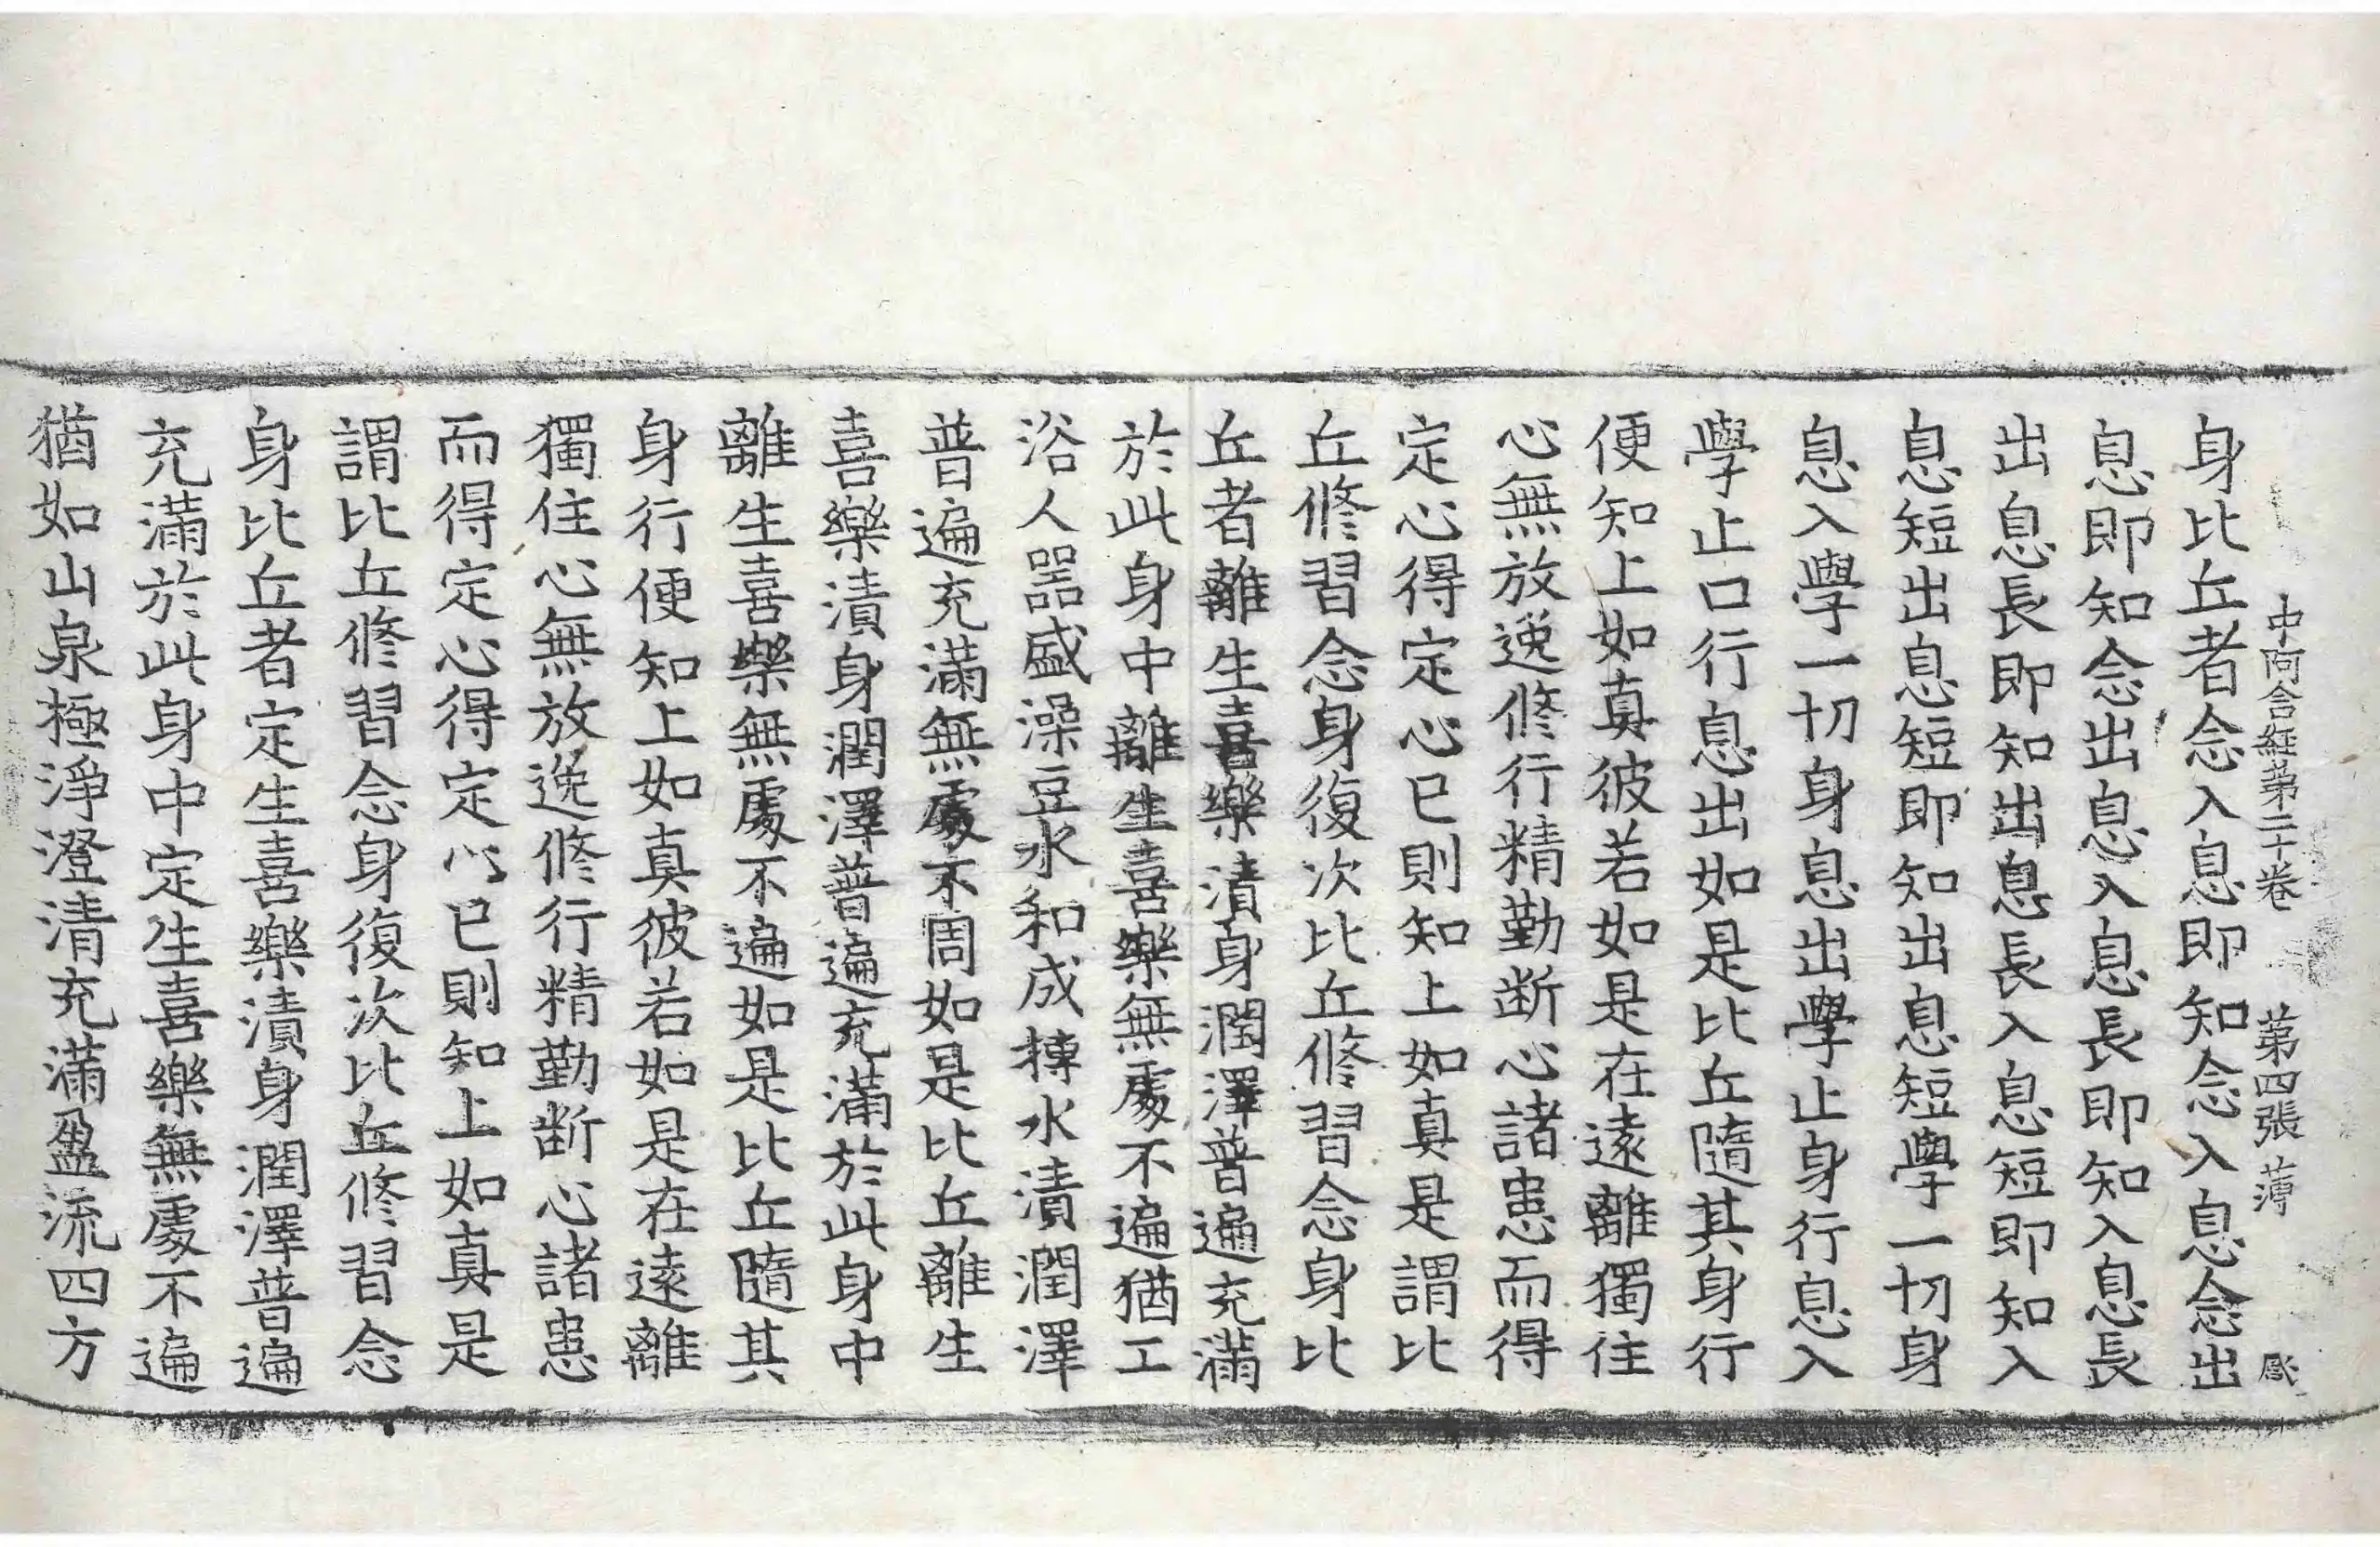 中阿含経第二十卷 第四張 薄
身比丘者念入息即知念入息念出
息即知念出息入息長即知入息長
出息長即知出息長入息短即知入
息短出息短即知出息短學一切身
息入學一切身息出學止身行息入
學止口行息出如是比丘隨其身行
便知上如真彼若如是在遠離獨住
心無放逸修行精勤断心諸患而得
定心得定心已則知上如真是謂比
丘修習念身復次比丘修習念身比
丘者離生喜樂漬身潤澤普遍充滿
於此身中離生喜樂無處不遍猶工
浴人噐盛澡豆水和成摶水漬潤澤
普遍充滿無處不周如是比丘離生
喜樂漬身潤澤普遍充滿於此身中
離生喜樂無處不遍如是比丘隨其
身行便知上如真彼若如是在遠離
獨住心無放逸修行精勤断心諸患
而得定心得定心已則知上如真是
謂比丘修習念身復次比丘修習念
身比丘者定生喜樂漬身潤澤普遍
充滿於此身中定生喜樂無處不遍
猶如山泉極淨澄清充滿盈流四方